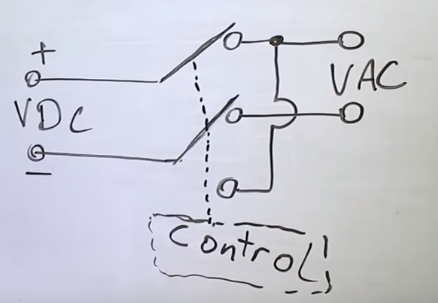 +
VDC
−
VAC
Control